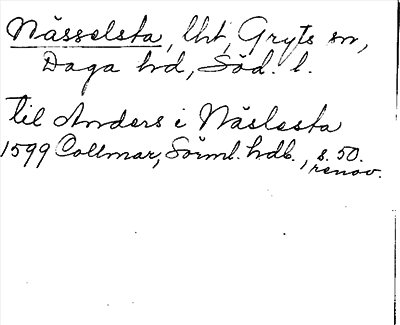 Nässelsta, lht, Gryts sn,
Daga hd, Söd. l.
til Anders i Näslesta
1599 Collmar, Sörml. hdb., s. 50.
renov.